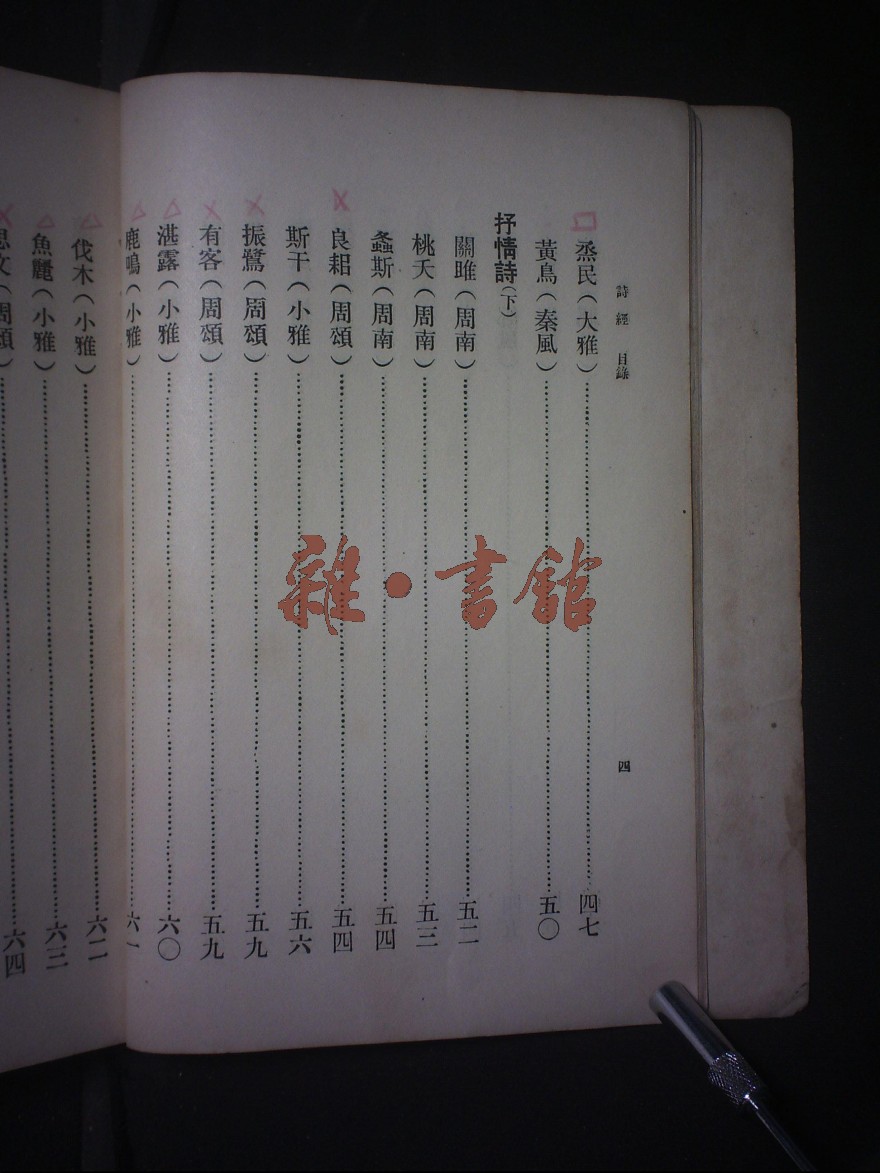 詩經 目錄
四
烝民(大雅)……四七
黃鳥(秦風)……五〇
抒情詩(下)
關雎(周南)……五二
桃夭(周南)……五三
螽斯(周南)……五四
良耜(周頌)……五四
斯干(小雅)……五六
振鷺(周頌)……五九
有客(周頌)……五九
湛露(小雅)……六〇
鹿鳴(小雅)……六一
伐木(小雅)……六二
魚麗(小雅)……六三
思文(周頌)……六四
雜·書館